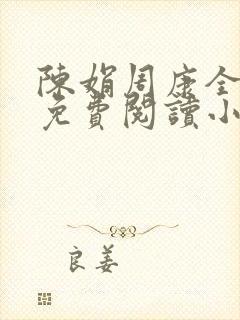 陳娟周康全
免費閱讀小
良姜